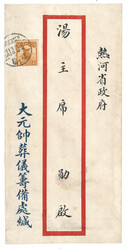 熱河省政府
湯主席勛啟
大元帥葬儀籌備處緘